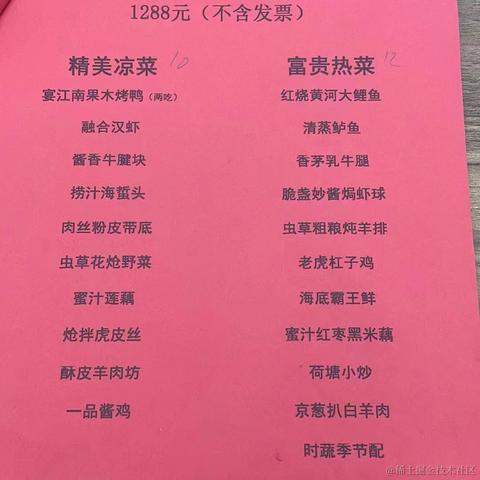 1288元（不含发票）
精美凉菜 10
富贵热菜 12
宴江南果木烤鸭（两吃）
红烧黄河大鲤鱼
融合汉虾
清蒸鲈鱼
酱香牛腱块
香茅乳牛腿
捞汁海蜇头
脆盏妙酱焗虾球
肉丝粉皮带底
虫草粗粮炖羊排
虫草花炝野菜
老虎杠子鸡
蜜汁莲藕
海底霸王鲜
炝拌虎皮丝
蜜汁红枣黑米藕
酥皮羊肉坊
荷塘小炒
一品酱鸡
京葱扒白羊肉
时蔬季节配
@稀土掘金技术社区